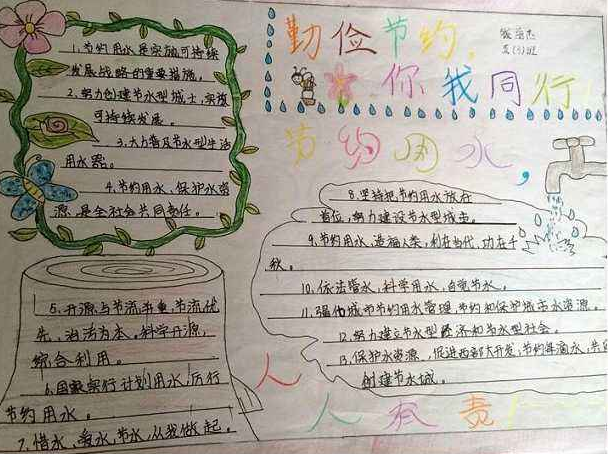 勤俭节约,
你我同行
五(1)班
节约用水,
1.节约用水是实施可持续
发展战略的重要措施。
2.努力创建节水型城土,实现
可持续发展。
3.大力普及节水型生活
用水器。
4.节约用水、保护水资
源,是全社会共同责任。
5.开源与节流并重,节流优
先、治污为本、科学开源、
综合利用。
6.国家实行计划用水,厉行
节约用水。
7.惜水、爱水、节水,从我做起。
8.坚持把节约用水放在
首位,努力建设节水型城市。
9.节约用水,造福人类,利在当代,功在千
秋。
10.依法管水,科学用水,自觉节水。
11.强化城市节约用水管理,节约和保护城市水资源。
12.努力建立节水型经济和节水型社会。
13.保护水资源,促进西部大开发,节约每滴水,共
创建节水城。
人
人有责